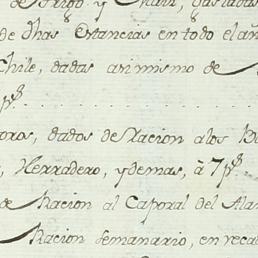 de Trigo y
de dhas Estancias en todo el añ
Chile, dadas asi mismo de
ps.
oros, dados de Racion a los
, Herradero, y demas, à 7 ps.
de Racion al Caporal del
Racion semanario, en